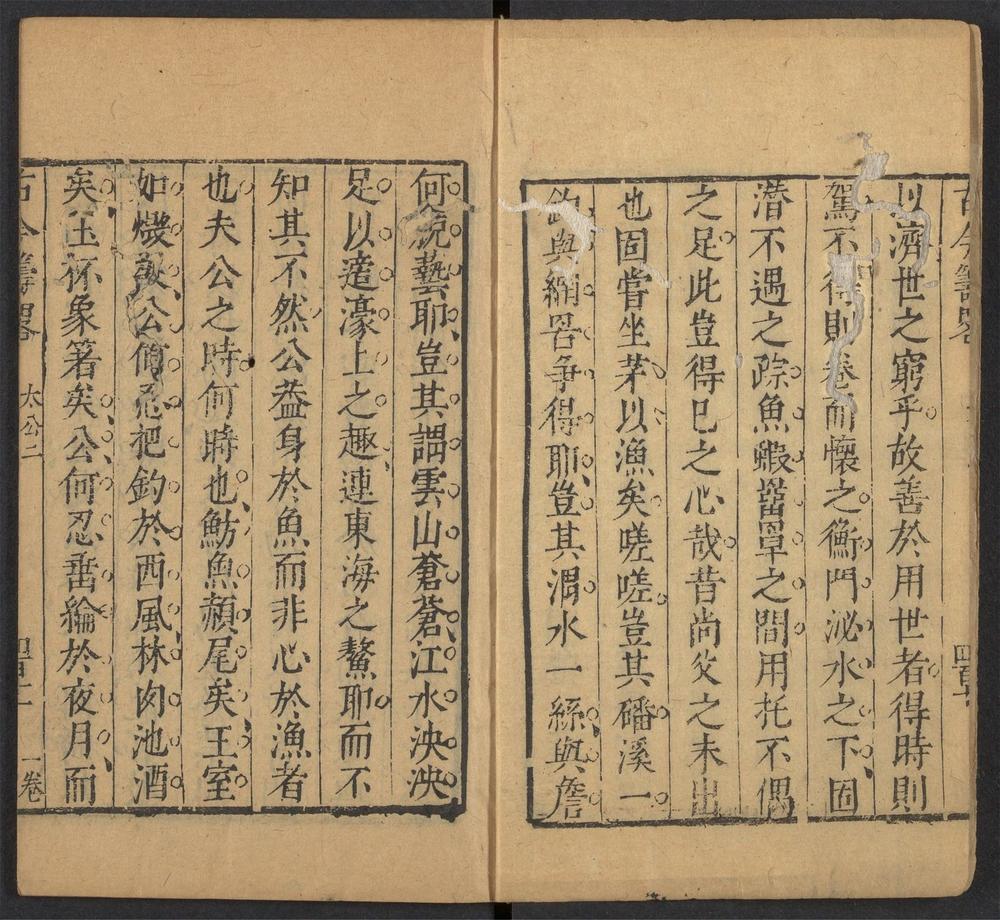 古今籌畧
四百十
以濟世之窮乎故善於用世者得時則
駕不得則卷而懷之衡門泌水之下固
潛不遇之踪魚蝦罾罩之間用托不偶
之足此豈得已之心哉昔尚父之未出
也固嘗坐茅以漁矣嗟嗟豈其磻溪一
鈎與網罟爭得耶豈其渭水一絲與詹
何競藝耶豈其謂雲山蒼蒼江水泱泱
足以適濠上之趣連東海之鰲耶而不
知其不然公葢身於魚而非心於漁者
也夫公之時何時也魴魚頳尾矣王室
如燬歟公傾忍把釣於西風林肉池酒
矣玉杯象箸矣公何忍垂綸於夜月而
古今籌畧
太公二
一卷